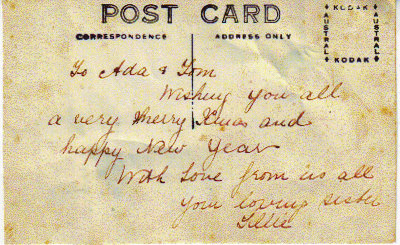 POST CARD
CORRESPONDENCE
ADDRESS ONLY
KODAK
AUSTRAL
AUSTRAL
KODAK
To Ada & Tom
Wishing you all
a very Merry Xmas and
happy New Year
With Love from us all
your loving sister
Tillie